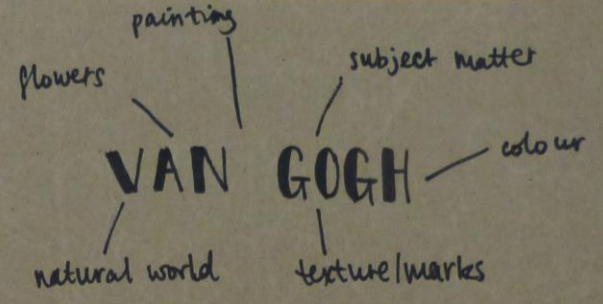 painting
flowers
subject matter
VAN GOGH
colour
natural world
texture/marks